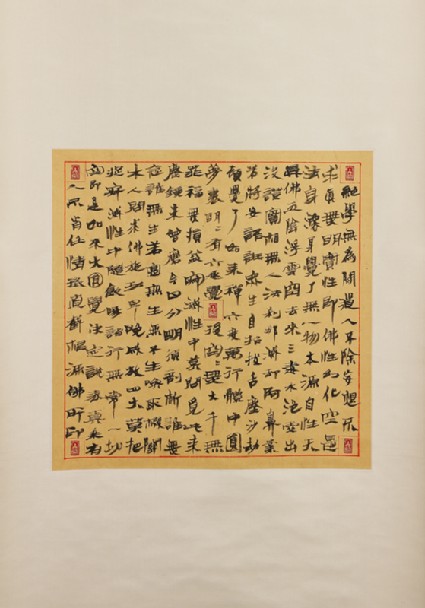 絕學無為閒道人不除妄想不
求真無明實性即佛性幻化空身即
法身法身覺了無一物本源自性天
真佛五蘊浮雲空去來三毒水泡虛出
沒證實相無人法剎那滅卻阿鼻業
若將妄語誑眾生自招拔舌塵沙劫
頓覺了如來禪六度萬行體中圓
夢裏明明有六趣覺後空空無大千無
罪福無損益寂滅性中莫問覓比來
塵鏡未曾磨今日分明須剖析誰無
念誰無生若實無生無不生喚取機關
木人問求佛施功早晚成放四大莫把
捉寂滅性中隨飲啄諸行無常一切
空即是如來大圓覺決定說表真乘有
人不肯任情徵直截根源佛所印